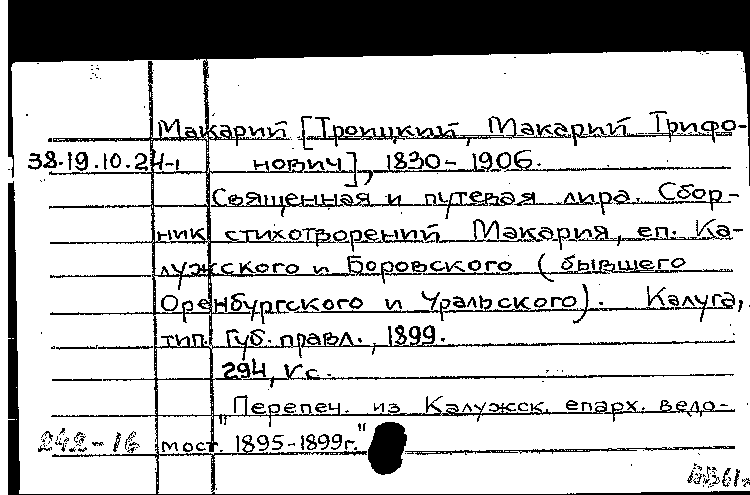 Макарий [Троицкий, Макарий Трифо-
38.19.10.24-1 нович], 1830-1906.
Священная и путевая лира. Сбор-
ник стихотворений Макария, еп. Ка-
лужского и Боровского (бывшего
Оренбургского и Уральского). Калуга,
тип. Губ. правл., 1899.
294, V с.
"Перепеч. из Калужск. епарх. ведо-
242-16 мост. 1895-1899г."